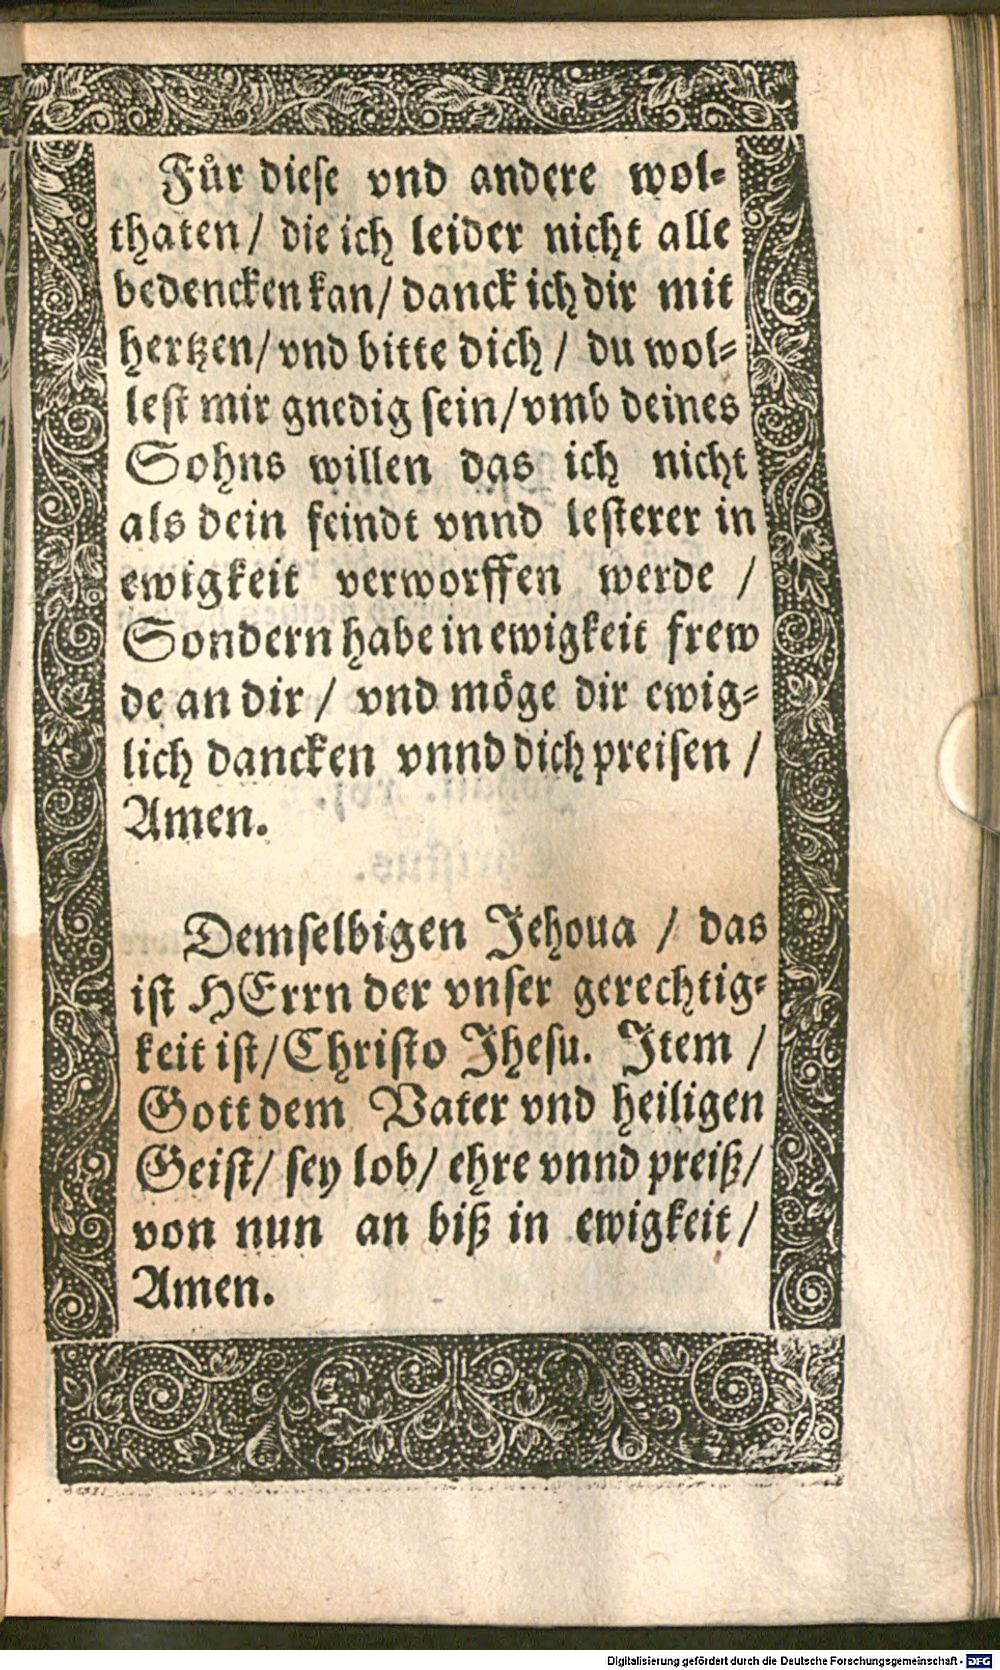 Fuͤr diese vnd andere wol-
thaten/ die ich leider nicht alle
bedencken kan/ danck ich dir mit
hertzen/ vnd bitte dich/ du wol-
lest mir gnedig sein/ vmb deines
Sohns willen das ich nicht
als dein feindt vnnd lesterer in
ewigkeit verworffen werde /
Sondern habe in ewigkeit frew
de an dir/ vnd moͤge dir ewig-
lich dancken vnnd dich preisen /
Amen.
Demselbigen Jehoua / das
ist HErrn der vnser gerechtig-
keit ist/ Christo Jhesu. Item /
Gott dem Vater vnd heiligen
Geist/ sey lob/ ehre vnnd preiß/
von nun an biß in ewigkeit/
Amen.
Digitalisierung gefördert durch die Deutsche Forschungsgemeinschaft - DFG